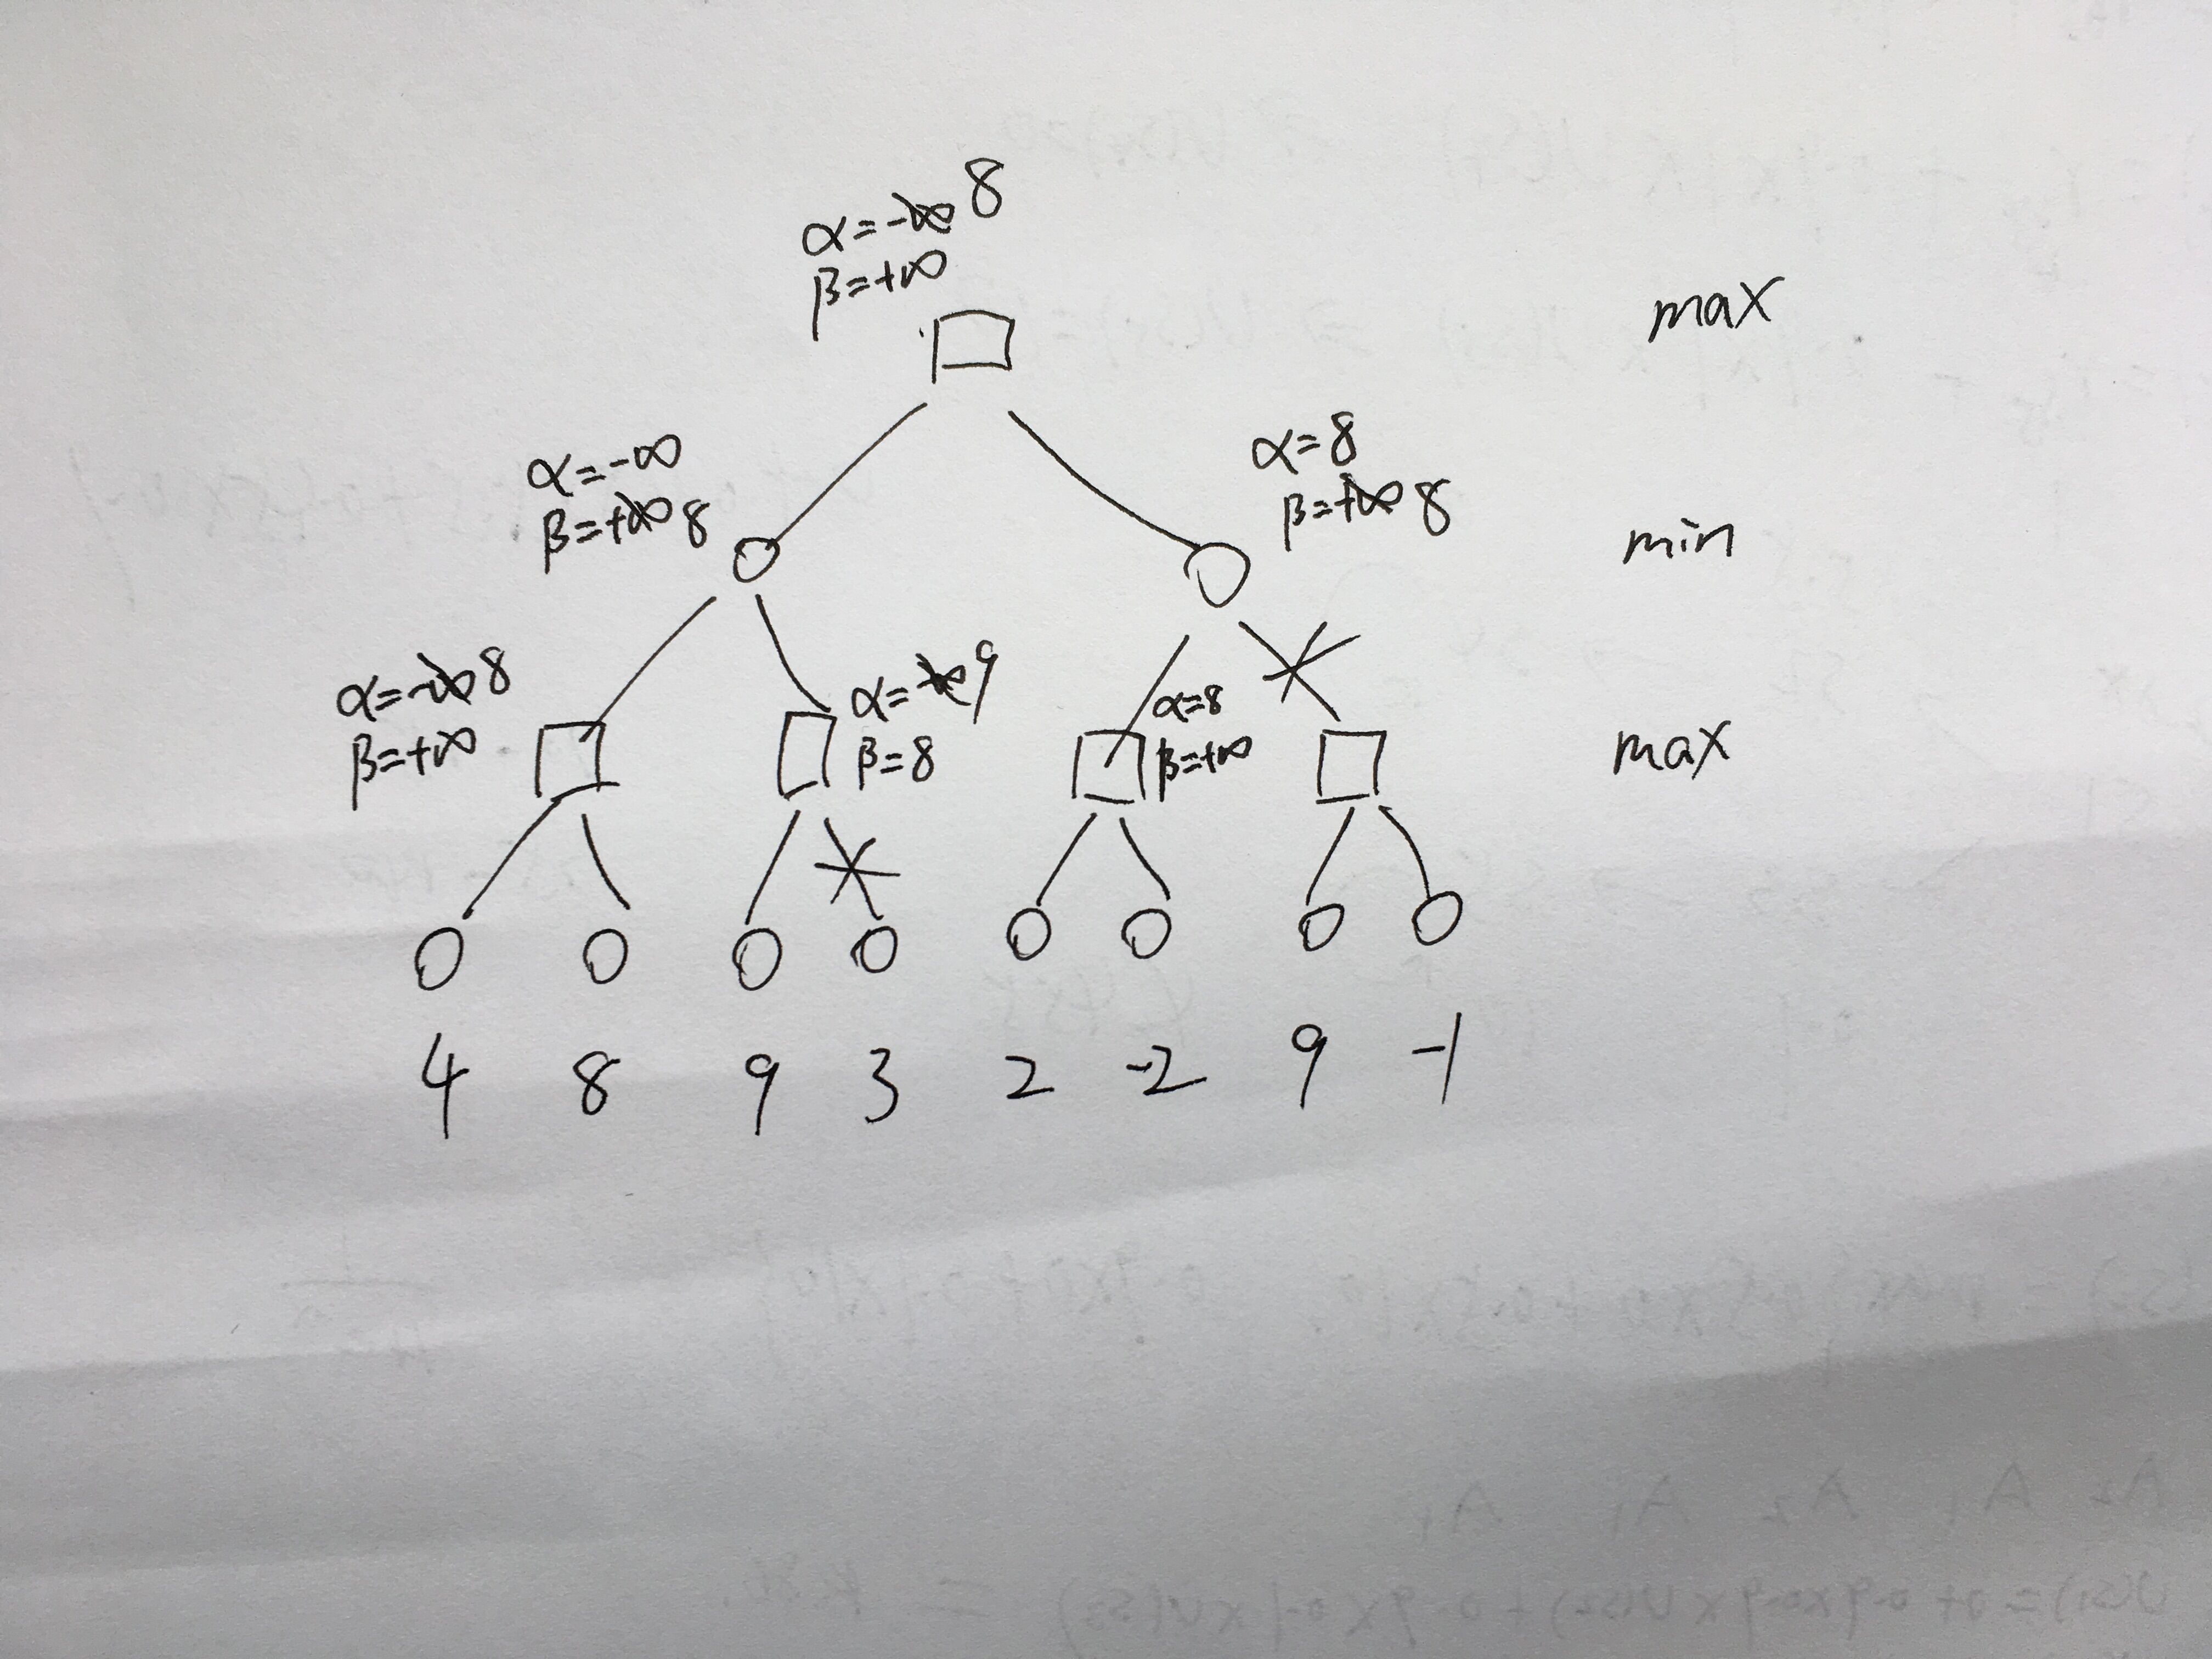 α=-∞ 8
β=+∞
max
α=-∞
β=+∞ 8
α=8
β=+∞ 8
min
α=-∞ 8
β=+∞
α=-∞ 9
β=8
α=8
β=+∞
max
4 8 9 3 2 -2 9 -1